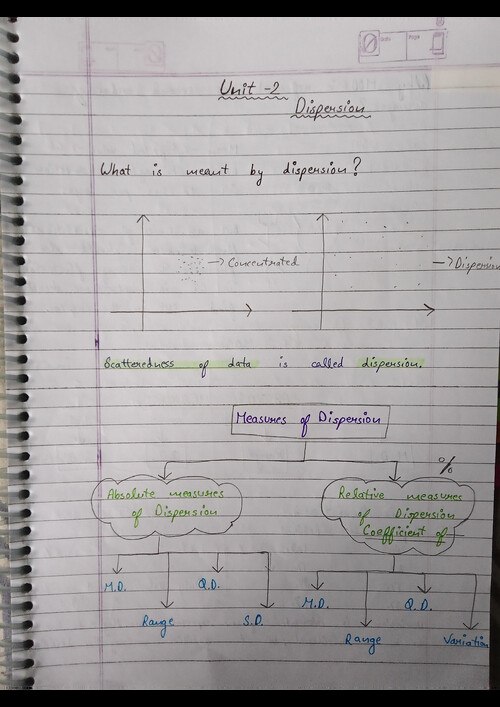 Unit - 2
Dispersion
What is meant by dispersion?
→ Concentrated
→ Dispersion
Scatteredness of data is called dispersion.
Measures of Dispersion
%
Absolute measures
of Dispersion
Relative measures
of Dispersion
Coefficient of —
M.D.
Range
Q.D.
S.D.
M.D.
Range
Q.D.
Variation